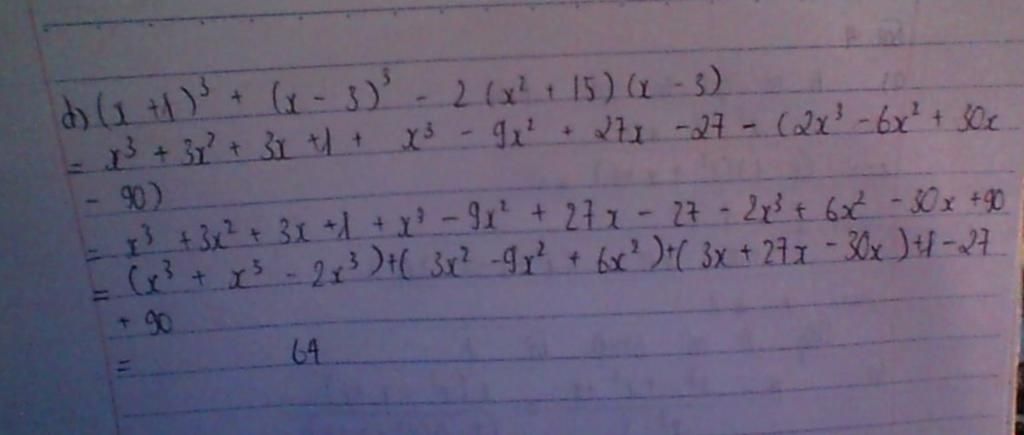 d) (x + 1)³ + (x - 3)³ - 2 (x² + 15) (x - 3)
= x³ + 3x² + 3x + 1 + x³ - 9x² + 27x - 27 - (2x³ - 6x² + 30x
- 90)
= x³ + 3x² + 3x + 1 + x³ - 9x² + 27x - 27 - 2x³ + 6x² - 30x + 90
= (x³ + x³ - 2x³) + (3x² - 9x² + 6x²) + (3x + 27x - 30x) + 1 - 27
+ 90
= 64